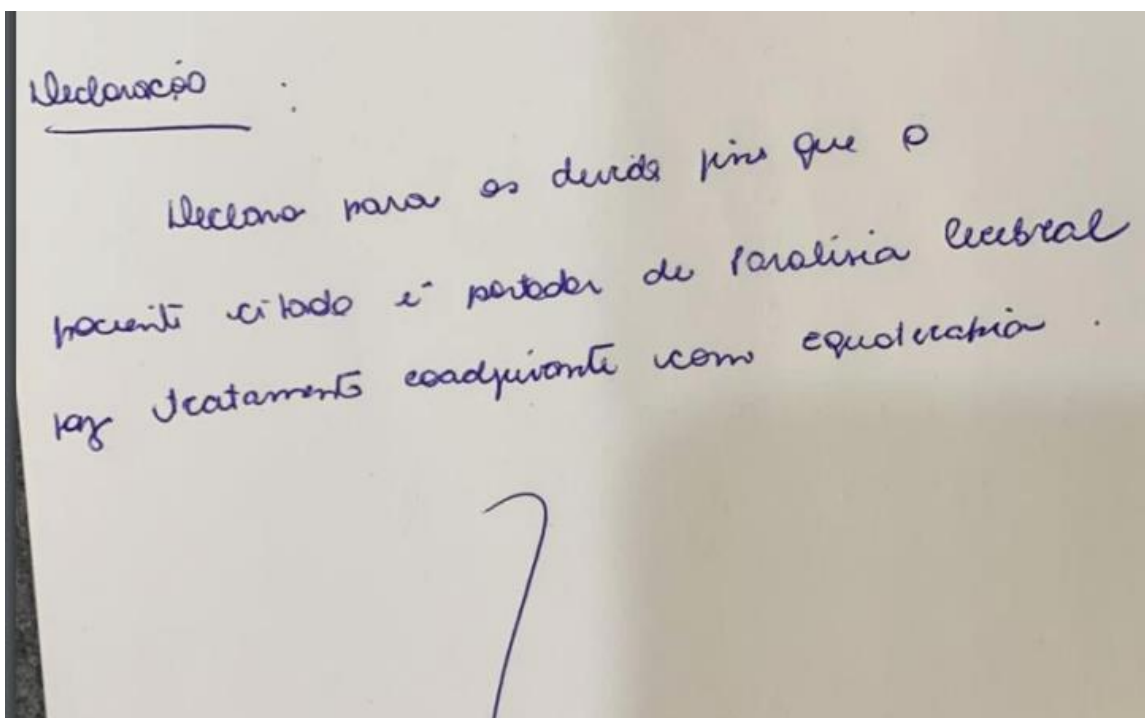 Declaração :
Declaro para os devido fins que o
paciente citado é portador de Paralisia Cerebral
faz tratamento coadjuvante com equoterapia .